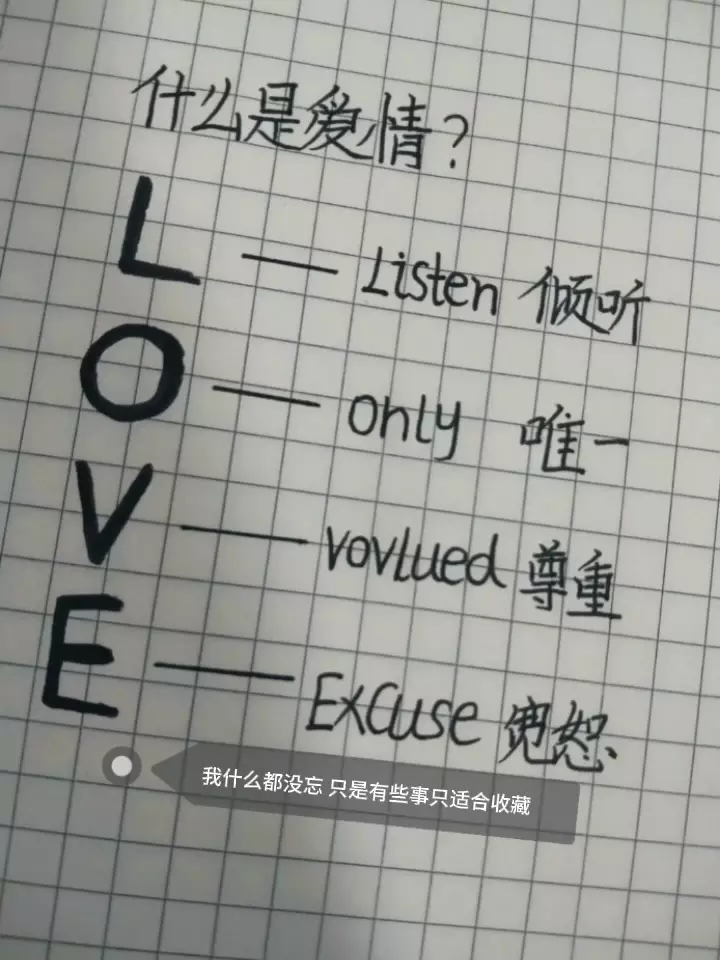 什么是爱情?
L — Listen 倾听
O — only 唯一
V — vovlued 尊重
E — Excuse 宽恕
我什么都没忘 只是有些事只适合收藏